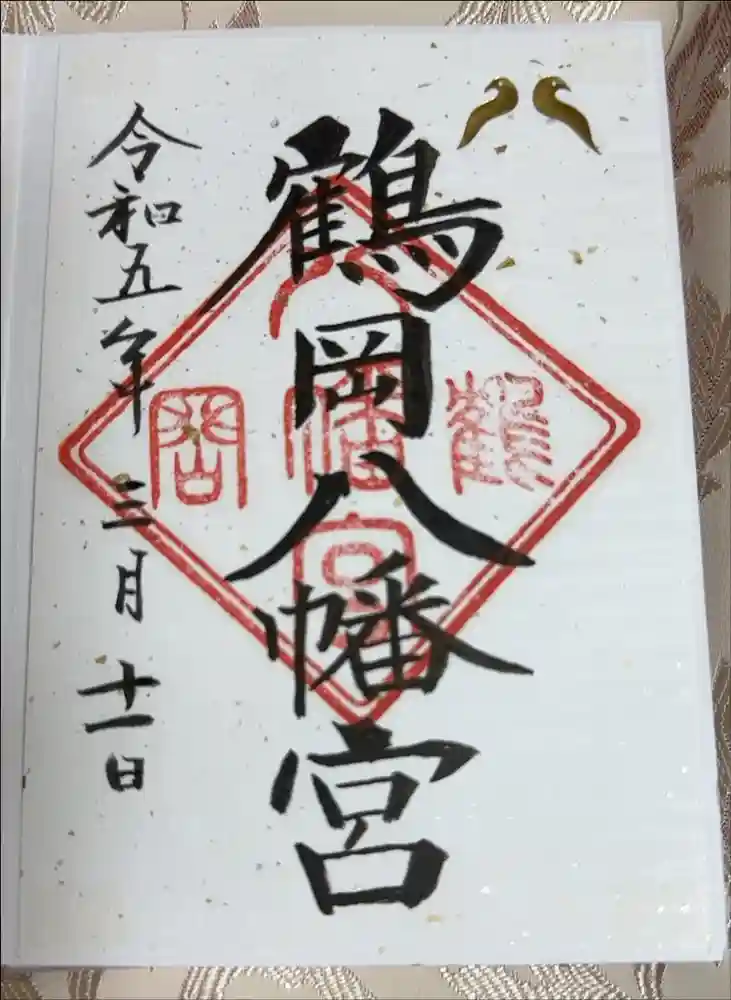 鶴岡八幡宮
令和五年三月十一日
鶴
八幡宮
岡